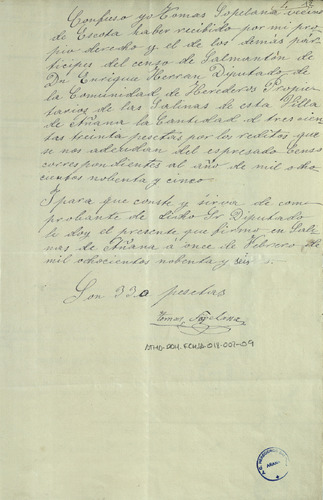 Confieso yo Tomas Sopelana vecino
de Escota haber recibido por mi pro
pio derecho y el de los demas par
ticipes del censo de Salmantón de
Dn. Enrique Herran Diputado de
la Comunidad de Herederos Propie
tarios de las Salinas de esta Villa
de Añana la Cantidad de trescien
tas treinta pesetas por los reditos que
se nos adeudan del espresado Censo
correspondientes al año de mil ocho
cientos nobenta y cinco
Y para que conste y sirva de com
probante de dicho Sr Diputado
le doy el presente que firmo en Sali
nas de Añana á once de Febrero de
mil ochocientos nobenta y seis.
Son 330 pesetas
Tomas Sopelana
ATHA-DAH-FCHSA-018-007-09